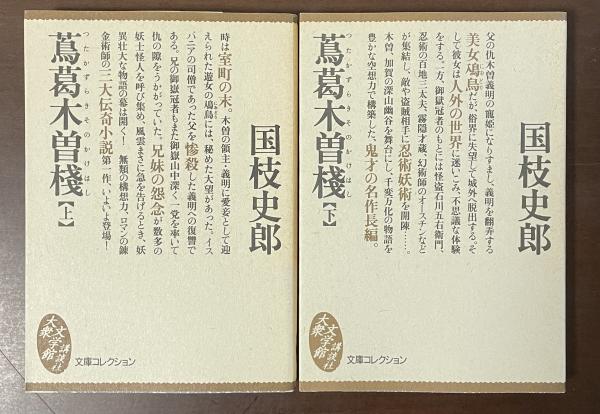 国枝史郎
時は室町の末。木曽の領主・義明に愛妾として迎
えられた遊女の鳰鳥には、秘めた大望があった。イス
パニアの司僧であった父を惨殺した義明への復讐で
ある。兄の御嶽冠者もまた御嶽山中深く一党を率いて
仇の隙をうかがっていた。兄妹の怨念が数多の
妖士怪人を呼び集め、風雲まさに急を告げるとき、妖
異壮大な物語の幕は開く！ 無類の構想力、ロマンの錬
金術師の三大伝奇小説第一作、いよいよ登場！
つたかずらきそのかけはし
蔦葛木曽棧【上】
大衆文学館
講談社
文庫コレクション
国枝史郎
父の仇木曽義明の寵姫になりすまし、義明を翻弄する
美女鳰鳥だが、俗界に失望して城外へ脱出する。そ
して彼女は人外の世界に迷いこみ、不思議な体験
をする。一方、御嶽冠者のもとには怪盗石川五右衛門、
忍術の百地三太夫、霧隠才蔵、幻術師のオースチンなど
が集結し、敵や盗賊相手に忍術妖術を開陳……。
木曽、加賀の深山幽谷を舞台にし、千変万化の物語を
豊かな空想力で構築した、鬼才の名作長編。
つたかずらきそのかけはし
蔦葛木曽棧【下】
大衆文学館
講談社
文庫コレクション